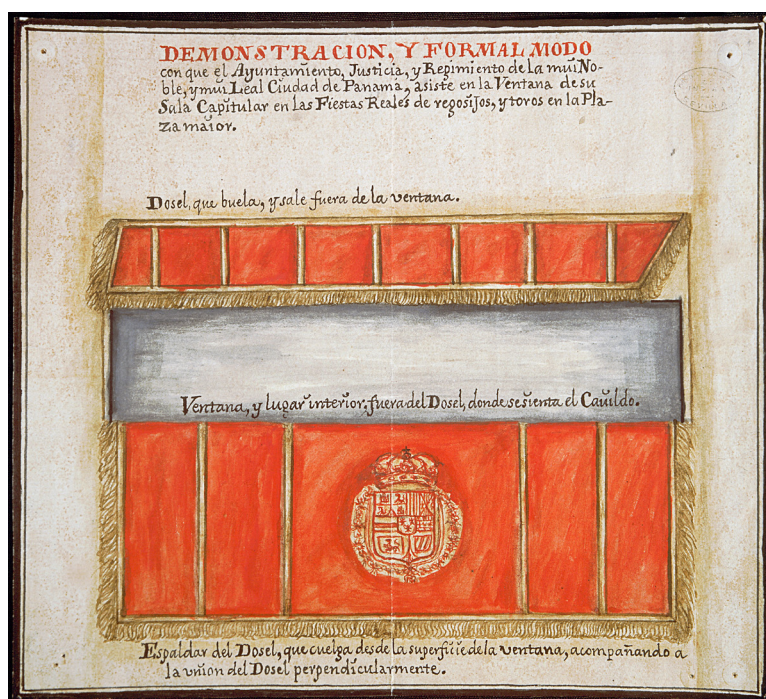 DEMONSTRACION, Y FORMAL MODO
con que el Ayuntamiento, Justicia, y Regimiento de la mui No-
ble, y mui Leal Ciudad de Panamá, asiste en la Ventana de su
Sala Capitular en las Fiestas Reales de regosijos, y toros en la Pla-
za maior.
Dosel, que buela, y sale fuera de la ventana.
Ventana, y lugar interior. fuera del Dosel, donde se sienta el Cavildo.
Espaldar del Dosel, que cuelga desde la superficie de la ventana, acompañando a
la union del Dosel perpendicularmente.